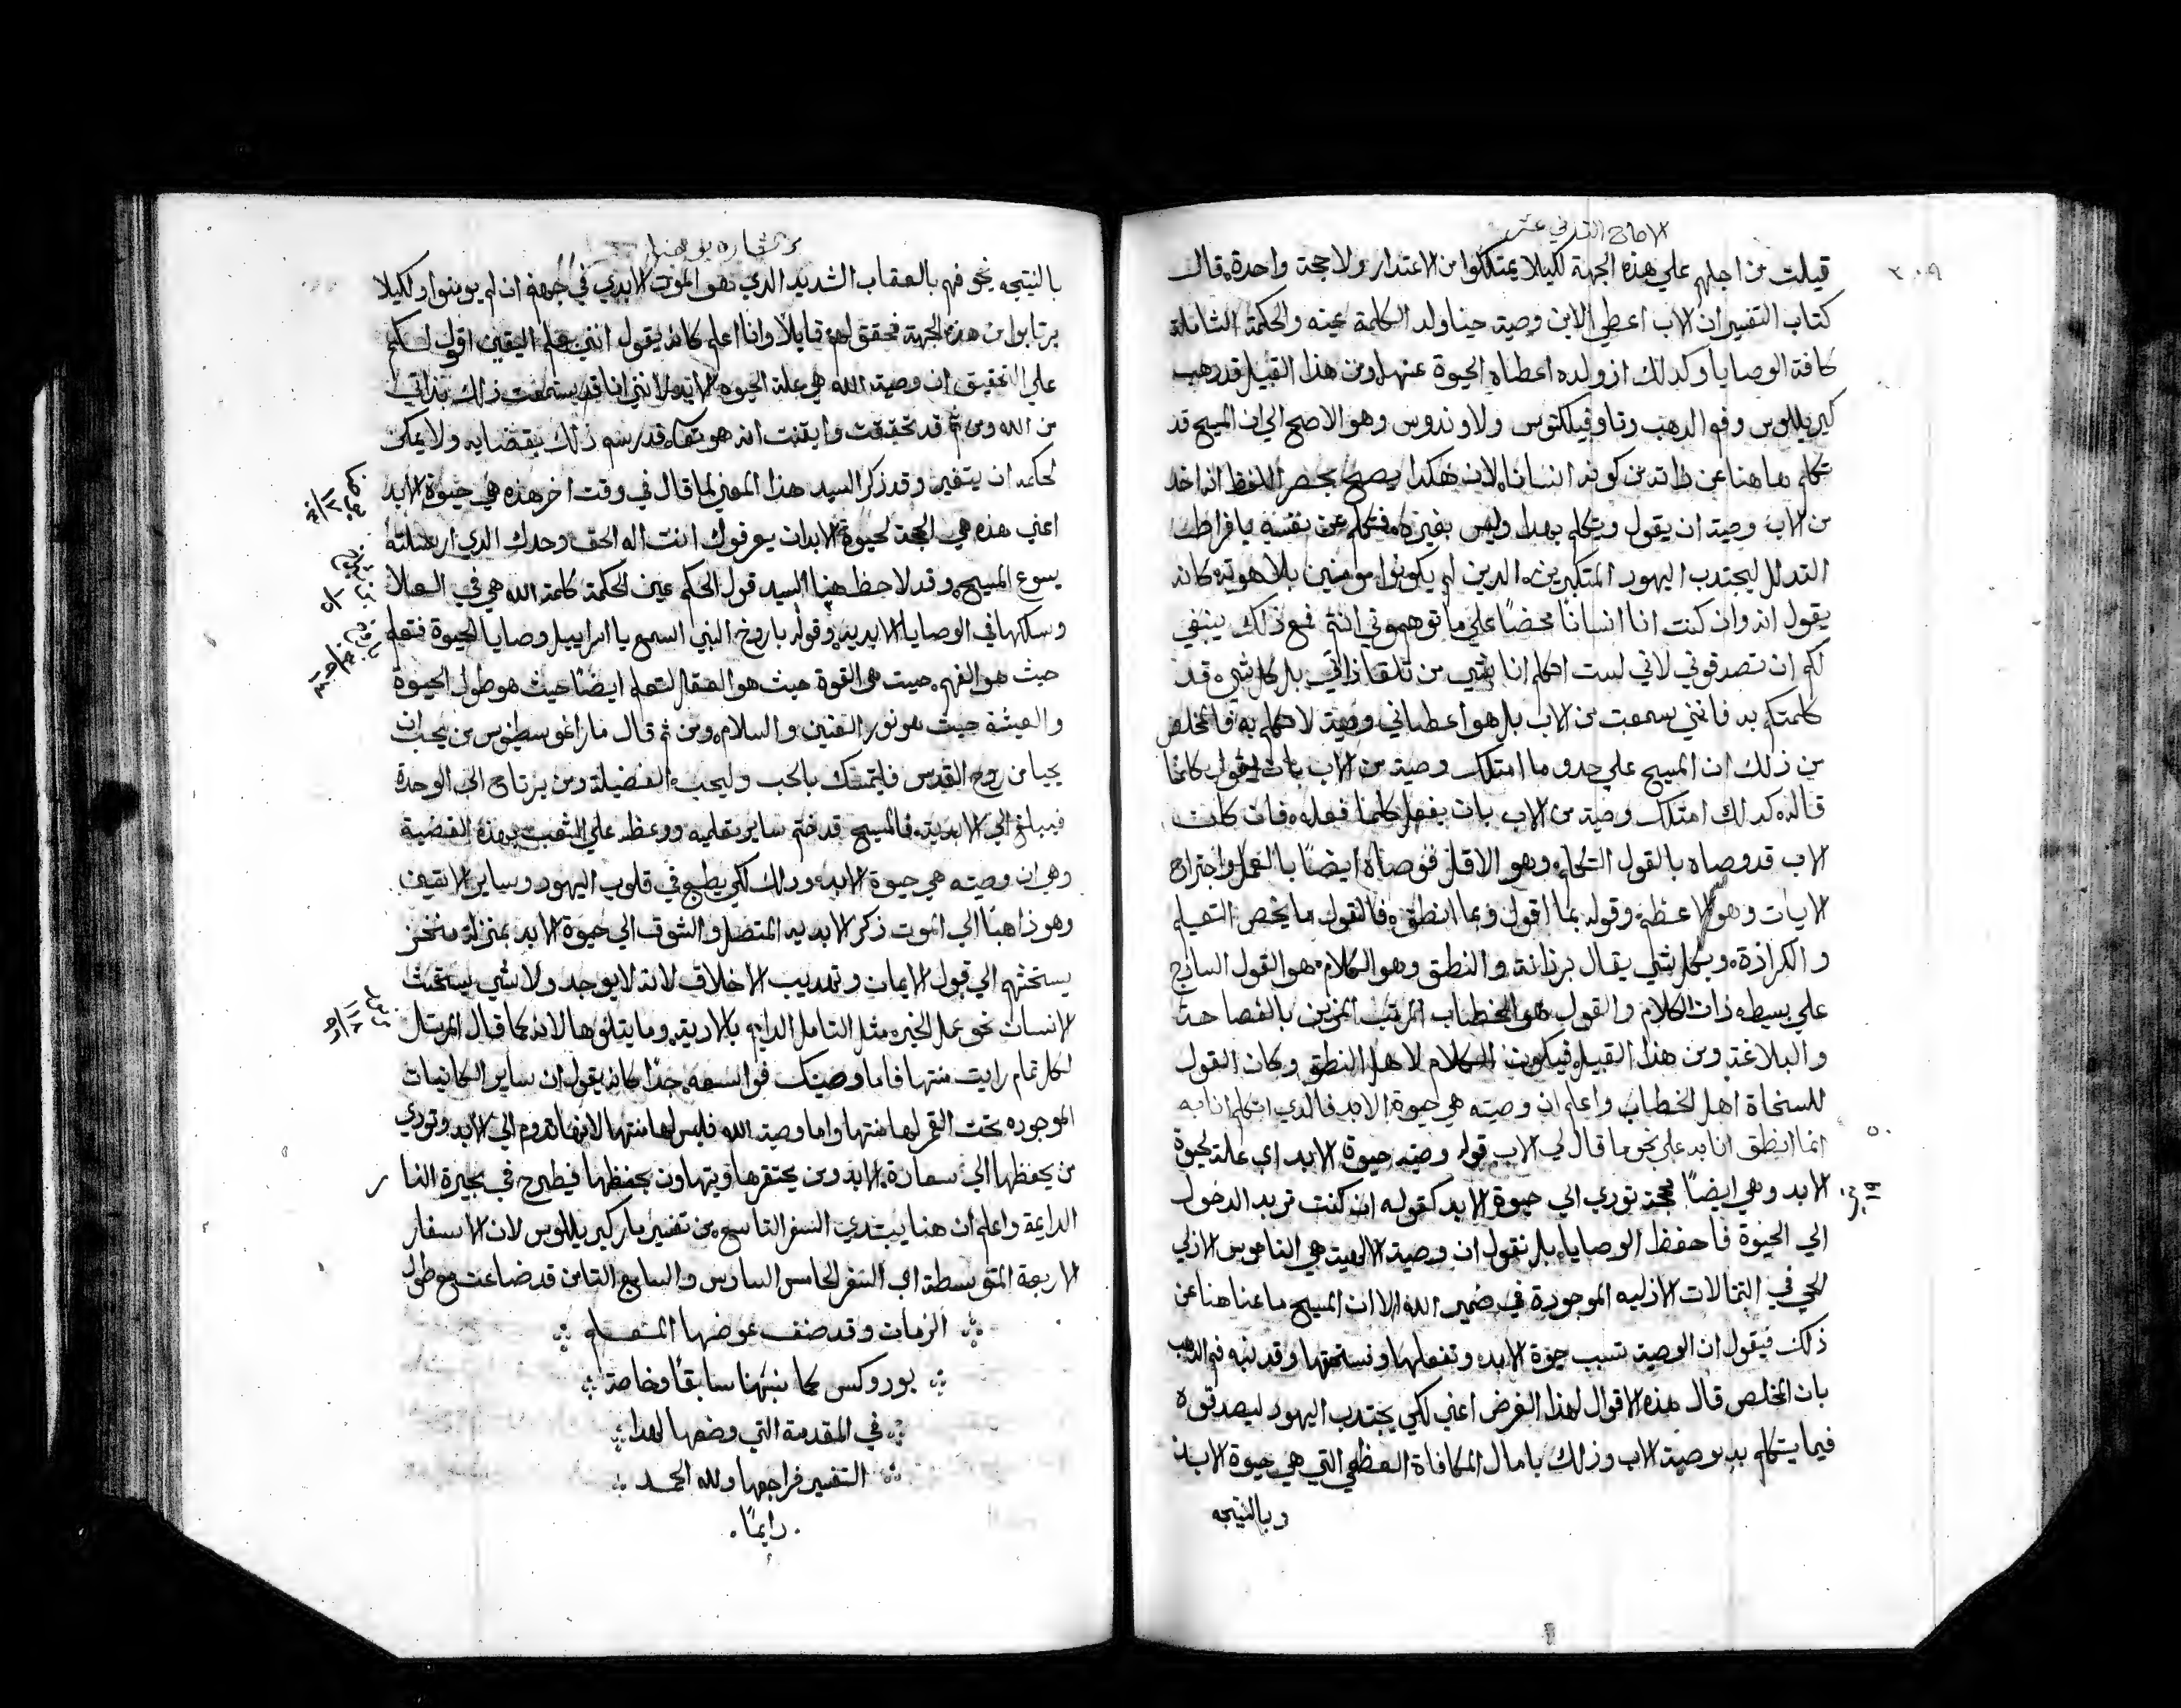 الاصحاح الثاني عشر
٣٠٩
قيلت من اجلهم علي هذه الجهة لكيلا يمتلكوا من الاعتدار ولا حجة واحدة. قال
كتاب التفسير ان الاب اعطي الابن وصية حينا ولد الكلمة عينه والحكمة الشاملة
كافة الوصايا وكدلك اذ ولده اعطاه الحيوة عنها. ومن هذا القبيل قد دهب
كيريللوس وفم الدهب وتاوفيلكتوس ولاوندوس وهو الاصح الي ان المسيح قد
تكلم هاهنا عن ذاته من كونه انسانا. لان هكدا يصح بحصر اللفظ انه اخد
من الاب وصية ان يقول ويتكلم بهدا وليس بغيره. فتكلم عن نفسه بافراط
التدلل ليجتدب اليهود المتكبرين. الدين لم يكونوا مومنين بلاهوته كانه
يقول انه وان كنت انا انسانًا محضًا علي ما توهموني انتم فمع ذلك ينبغي
لكم ان تصدقوني لاني لست اتكلم انا بشي من تلقا ذاتي بل كل شي قد
كلمتكم به فانني سمعت من الاب بل هو اعطاني وصية لاتكلم به فالمخلص
من ذلك ان المسيح علي حدو ما امتلك وصية من الاب بان يقول كلما
قاله. كدلك امتلك وصية من الاب بان يفعل كلما فعله. فان كان
الاب قد وصاه بالقول التكلم. وهو الاقل فوصاه ايضًا بالفعل واجتراح
الايات وهو الاعظم. وقوله بما اقول وبما انطق. فالقول ما يخص التعليم
والكرازة. وبكل شي يقال برزانة والنطق وهو الكلام. هو القول السادج
علي بسيطه ذات الكلام والقول هو الخطاب المرتب المزين بالفصاحة
والبلاغة. ومن هذا القبيل فيكون الكلام لاهل النطق وكان القول
للسنحاة اهل الخطاب واعلم ان وصيته هي حيوة الابد. فالدي اتكلم انا به
٥٠ انما انطق انا به علي نحو ما قال لي الاب قوله وصيته حيوة الابد اي علة لحيوة
الابد وهي ايضًا محجة تودي الي حيوة الابد كقوله ان كنت تريد الدخول
الي الحيوة فاحفظ الوصايا. بل نقول ان وصية الالهية هي الناموس الازلي
الحي في التمالات الازليه الموجودة في ضمير الله. الا ان المسيح ما عنا هنا عن
ذلك فيقول ان الوصية تسبب حيوة الابد. وتفعلها وتستحقها وقد نبه فم الدهب
بان المخلص قال هذه الاقوال لهذا الغرض اعني لكي يجتدب اليهود ليصدقوه
فيما يتكلم به بوصية الاب وذلك بامال المكافاة العظمي التي هي حيوة الابد.
وبالنتيجه
بشاره يوحنا
بالنتيجه نحوفهم بالعقاب الشديد الدي هو الموت الابدي في جهنم ان لم يومنوا. ولكيلا
يرتابوا من هذه الجهة فحقق لهم قايلًا وانا اعلم كانه يقول انني بعلم اليقين اقول لكم
علي التحقيق ان وصية الله هي علة الحيوه الابديه. لانني انا قد سمعت ذلك بذاتي
من الله ومن ثم قد تحققت وايقنت انه هو تعا قد رسم ذلك بقضايه ولا يمكن
لحكمه ان يتغير. وقد ذكر السيد هذا المعني لما قال في وقت اخر هذه هي حيوة الابد
اعني هذه هي المحجة لحيوة الابد ان يعرفوك انت اله الحق وحدك الدي ارسلته
يسوع المسيح. وقد لاحظ هنا السيد قول الحكيم عين الحكمة كلمة الله هي في العلا
وسلكها في الوصايا الابدية. وقوله باروخ النبي اسمع يا اسراييل وصايا الحيوة فتعلم
حيث هو الفهم. حيث هي القوة حيث هو العقل لتعلم ايضًا حيث هو طول الحيوة
والعيشة حيث هو نور العنين والسلام. ومن ثم قال مار اغوسطنوس من يحب ان
يحيا من روح القدس فليتمسك بالحب وليحب الفضيلة ومن يرتاح الي الوحدة
فيبلغ الي الابدية. فالمسيح قد ختم ساير تعليمه ووعظه علي الشعب بهذه القضية
وهي ان وصيته هي حيوة الابد. ودلك لكي يطبع في قلوب اليهود وساير الاتقين
وهو ذاهبًا الي الموت ذكر الابديه المتصل والشوق الي حيوة الابد بمنزلة منخز
يستحثهم الي قبول الايمان وتهديب الاخلاق لانه لا يوجد ولا شي يستحث
الانسان نحو عمل الخير. مثل التامل الدايم بالابدية. وما يتلوها لانه كما قال المرتل
لكل تمام رايت منتها فاما وصيتك فواسعه جدًا كانه يقول ان ساير الكاينات
الموجوده تحت القمر لها منتها واما وصية الله فليس لها منتها لانها تدوم الي الابد وتودي
من يحفظها الي سعادة الابد ومن يحتقرها ويتهاون بحفظها فيطرح في بحيرة النا ر
الدايمة واعلم ان هنا يبتدي السفر التاسع من تفسير مار كيريللوس لان الاسفار
الاربعة المتوسطة اي السفر الخامس السادس والسابع التامن قد ضاعت مع طول
الزمان وقد صنف عوضها المتعلم
يوروكس كما نبهنا سابقًا وخاصة
في المقدمة التي وضعها لهدا
التفسير فراجعها ولله الحمد
دايمًا